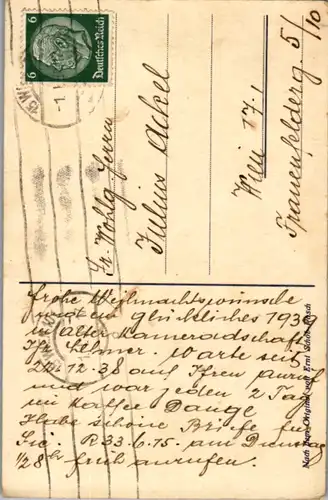 6 Deutsches Reich 6
Sr. Wohlg Herrn
Julius Ackel
Wien IV.
Frauenfelderg. 5/
/10
frohe Weihnachtswünsche
und ein glückliches 193
in alter Kameradschaft
Warte seit
2. 12. 38 auf Ihren
und war jeden 2 Tag
im Kaffee
Habe schöne Briefe für
Sie. R. 33.6.15. am Dienstag
1/28 früh anrufen.
Nach dem Original von Erni